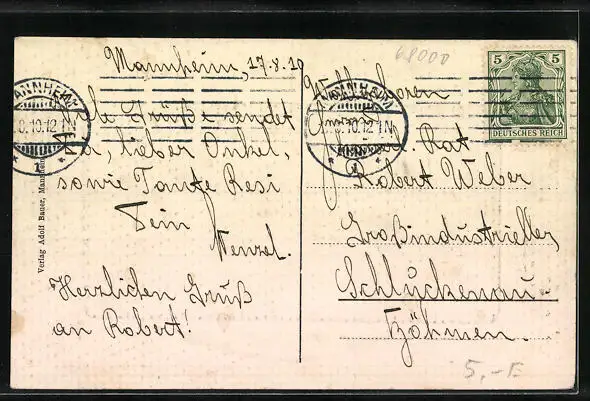 Mannheim, 17.8.10
Grüße sendet
Dir, lieber Onkel,
sowie Tante Resi
Dein
Wenzel.
Herzlichen Gruß
an Robert!
Verlag Adolf Bauer, Mannheim
MANNHEIM
8.10.12-1N
68000
Wohlgeboren
MANNHEIM
8.10.12-1N
Rat
Robert Weber
Großindustrieller
Schluckenau
Böhmen.
5
5
DEUTSCHES REICH
5,-E